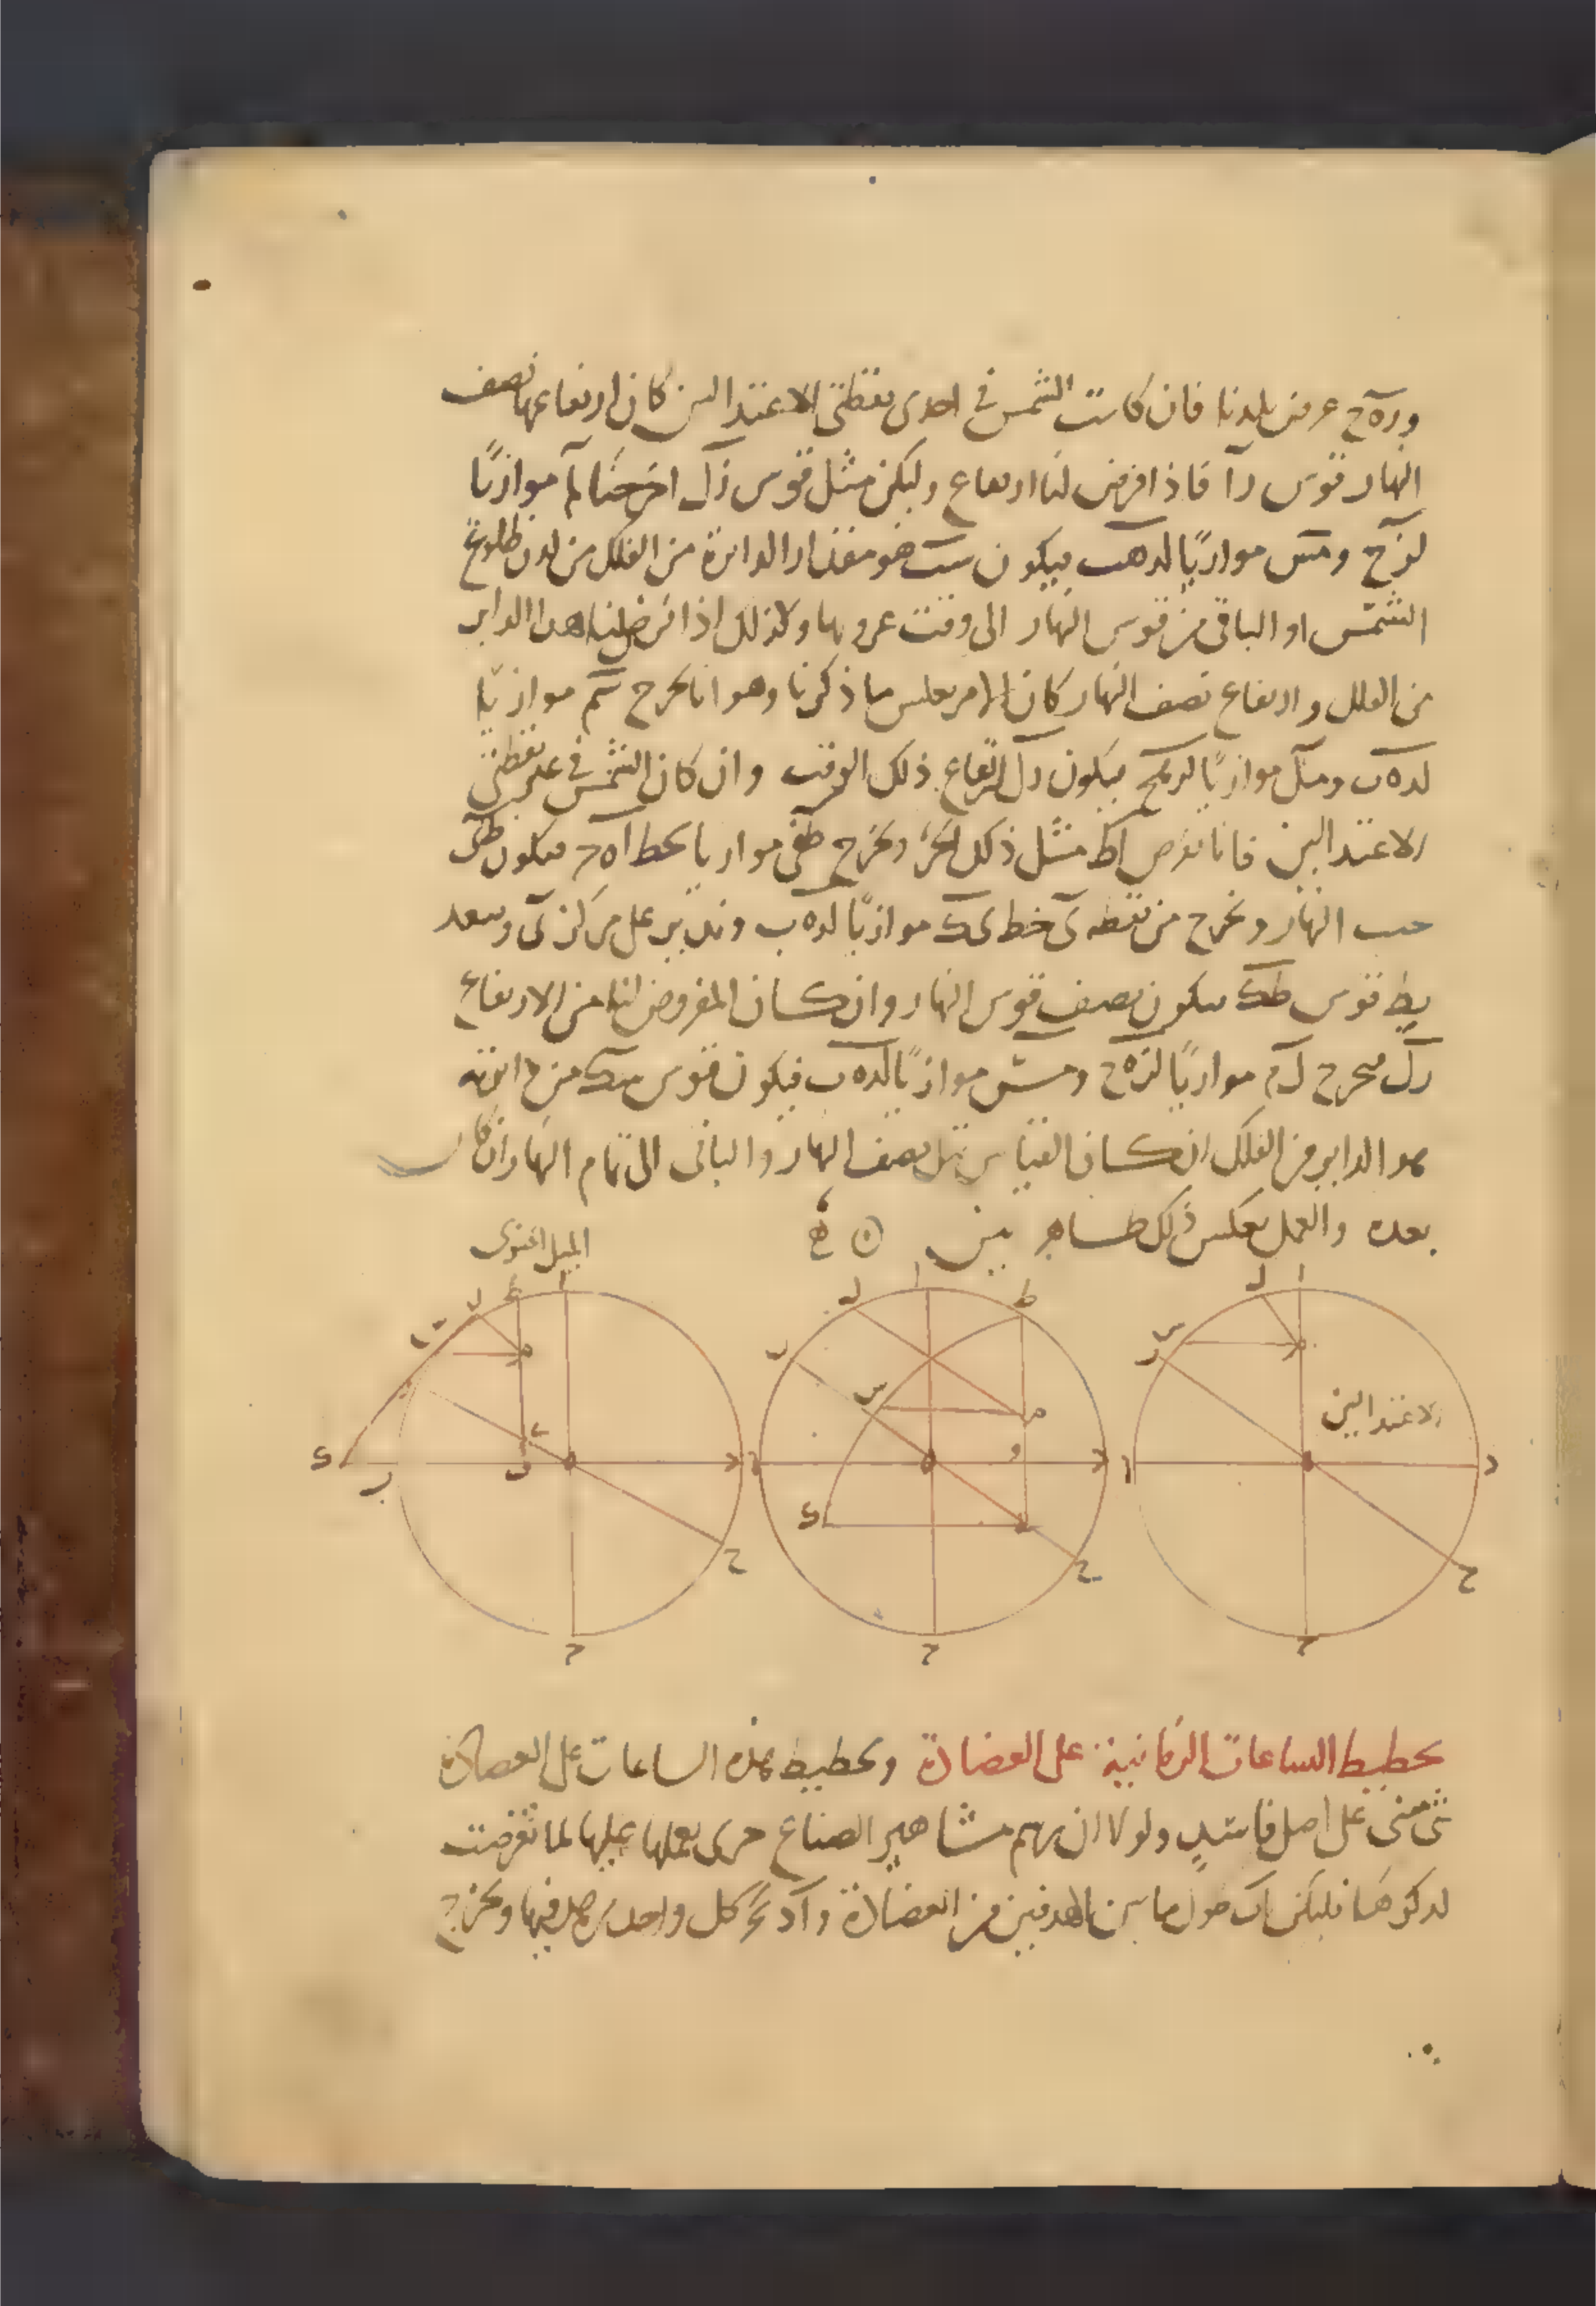 وره‌ح عرض بلدنا فان كانت الشمس فى احدى نقطتى الاعتدالين كان ارتفاعها نصف
النهار قوس را فاذا فرض لنا ارتفاع وليكن مثل قوس رل اخرجنا لم موازيًا
لزح ومس موازيًا لده‌ب فيكون سب هو مقدار الدائرة من الفلك من لدن طلوع
الشمس او الباقى من قوس النهار الى وقت غروبها وكذلك اذا فرض لنا هذا الداير
من الفلك وارتفاع نصف النهار كان الامر بعكس ما ذكرنا وهو انا نخرج سم موازيًا
لده‌ب ومل موازيًا لرح فيكون رل ارتفاع ذلك الوقت وان كان الشمس فى غير نقطتى
الاعتدالين فانا نفرض اط مثل ذلك الجزء ونخرج طى موازيا لخط اه‌ج فيكون طى
جيب النهار ونخرج من نقطه ى خط ىك موازيًا لده‌ب وندير على مركز ى وببعد
يط قوس طك فيكون نصف قوس النهار وان كان المفروض لنا من الارتفاع
رل فنخرج لم موازيًا لزه‌ح ومس موازيًا لده‌ب فيكون قوس سك من دائرته
هو الداير من الفلك ان كان القياس قبل نصف النهار والباقى الى تمام النهار ان كان
بعده والعمل بعكس ذلك ظاهر بين
الميل الجنوبى
الاعتدالين
تخطيط الساعات الزمانية على العضادة وتخطيط هذه الساعات على العضادة
شى مبنى على اصل فاسد ولولا ان رسم مشاهير الصناع جرى بعملها عليها لما تعرضت
لذكرها فليكن اب طول ما بين الهدفين من العضادة واد كل واحد فيها ونخرج